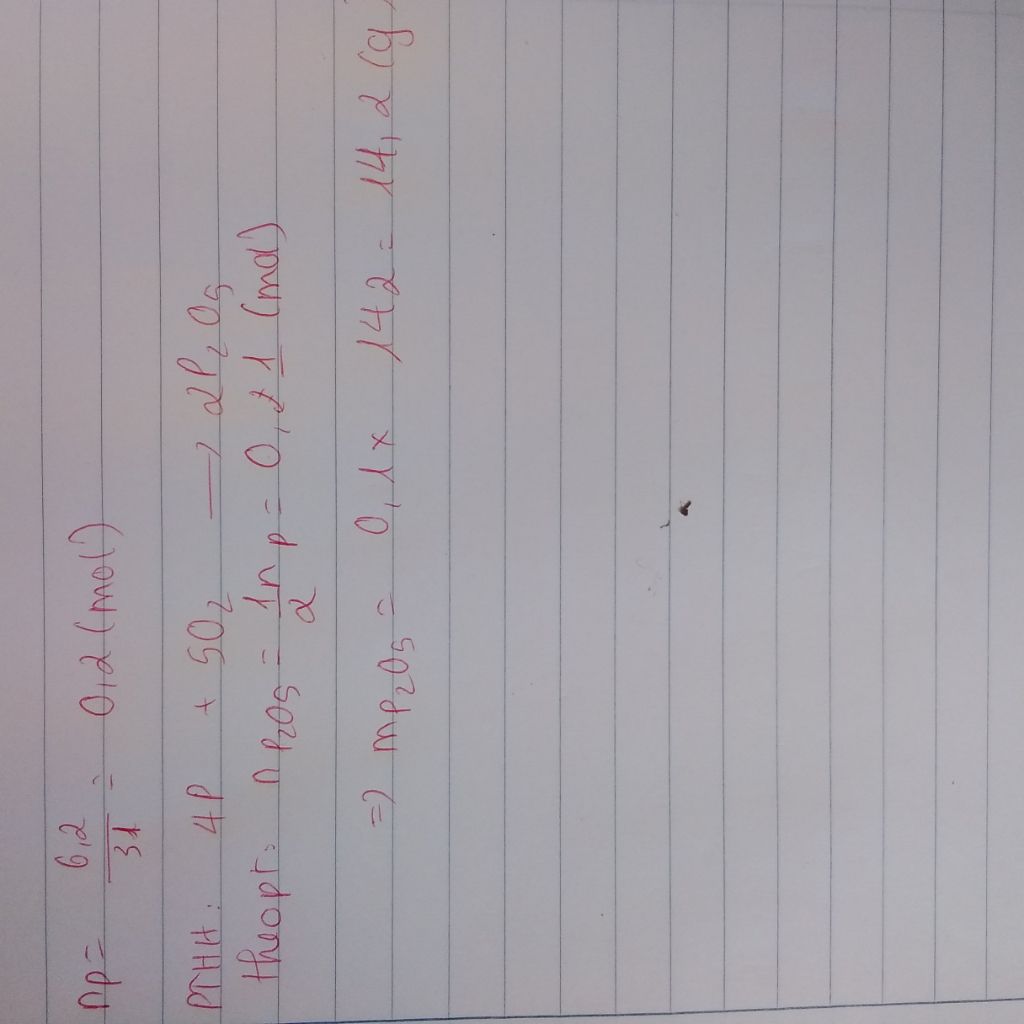 np = 6,2/31 = 0,2 (mol)
PTHH: 4P + 5O₂ → 2P₂O₅
theopt: nP₂O₅ = 1/2 nP = 0,1 (mol)
=> mP₂O₅ = 0,1 x 142 = 14,2 (g)